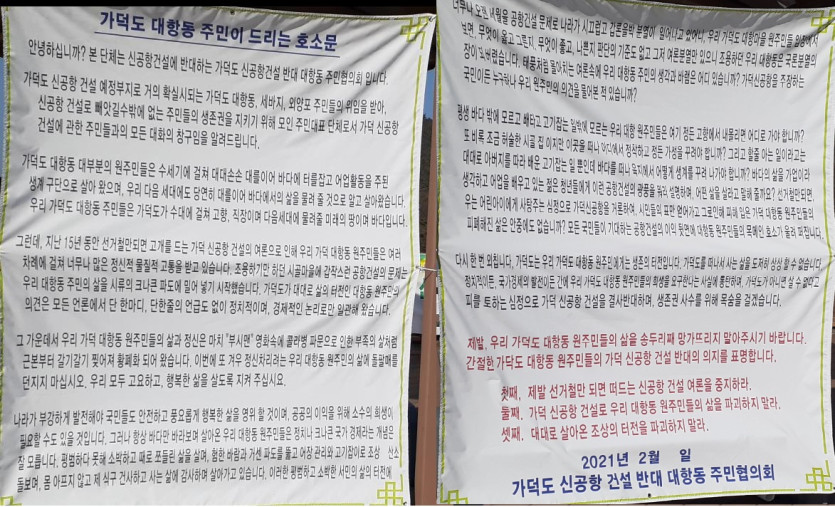 가덕도 대항동 주민이 드리는 호소문
안녕하십니까? 본 단체는 신공항건설에 반대하는 가덕도 신공항건설 반대 대항동 주민협의회 입니다.
가덕도 신공항 건설 예정부지로 거의 확실시되는 가덕도 대항동, 세바지, 외양포 주민들의 위임을 받아,
신공항 건설로 빼앗길수밖에 없는 주민들의 생존권을 지키기 위해 모인 주민대표 단체로서 가덕 신공항
건설에 관한 주민들과의 모든 대화의 창구임을 알려드립니다.
가덕도 대항동 대부분의 원주민들은 수세기에 걸쳐 대대손손 대를이어 바다에 터를잡고 어업활동을 주된
생계 구단으로 살아 왔으며, 우리 다음 세대에도 당연히 대를이어 바다에서의 삶을 물려 줄 것으로 알고 살아왔습니다.
우리 가덕도 대항동 주민들은 가덕도가 수대에 걸쳐 고향, 직장이며 다음세대에 물려줄 미래의 땅이며 바다입니다.
그런데, 지난 15년 동안 선거철만되면 고개를 드는 가덕 신공항의 여론으로 인해 우리 가덕 대항동 원주민들은 여러
차례에 걸쳐 너무나 많은 정신적 물질적 고통을 받고 있습니다. 조용하기만 하던 시골마을에 갑작스런 공항건설의 문제는
우리 대항동 주민의 삶을 시류의 크나큰 파도에 밀어 넣기 시작했습니다. 가덕도가 대대로 삶의 터전인 대항동 원주민의
의견은 모든 언론에서 단 한마디, 단한줄의 언급도 없이 정치적이며, 경제적인 논리로만 일관해 왔습니다.
그 가운데서 우리 가덕 대항동 원주민들의 삶과 정신은 마치 "부시맨" 영화속에 콜라병 파문으로 인한 부족의 삶처럼
근본부터 갈기갈기 찢어져 황폐화 되어 왔습니다. 이번에 또 겨우 정신차리려는 우리 대항동 원주민의 삶에 돌팔매를
던지지 마십시오. 우리 모두 고요하고, 행복한 삶을 살도록 지켜 주십시요.
나라가 부강하게 발전해야 국민들도 안전하고 풍요롭게 행복한 삶을 영위 할 것이며, 공공의 이익을 위해 소수의 희생이
필요할 수도 있을 것입니다. 그러나 항상 바다만 바라보며 살아온 우리 대항동 원주민들은 정치나 크나큰 국가 경제라는 개념은
잘 모릅니다. 평범하다 못해 소박하고 때로 쪼들린 삶을 살며, 험한 바람과 거센 파도를 뚫고 어장 관리와 고기잡이로 조상 산소
돌보며, 몸 아프지 않고 제 식구 건사하고 사는 삶에 감사하며 살아가고 있습니다. 이러한 평범하고 소박한 서민의 삶의 터전에
너무나 오랜 세월을 공항건설 문제로 나라가 시끄럽고 갑론을박 분쟁이 일어나고 있어나, 우리 가덕도 대항마을 원주민들 입장에서
보면, 무엇이 옳고 그른지, 무엇이 좋고, 나쁜지 판단의 기준도 없고 그저 여론분열만 있으니 조용하던 우리 대항동은 국론분열의
장이 되버렸습니다. 태풍처럼 몰아치는 여론속에 우리 대항동 주민의 생각과 바램은 어디 있습니까? 가덕신공항을 주장하는
국민이든 누구하나 우리 원주민의 의견을 들어본 적 있습니까?
평생 바다 밖에 모르고 배타고 고기잡는 일밖에 모르는 우리 대항 원주민들은 여기 정든 고향에서 내몰리면 어디로 가야 합니까?
또 비록 조금 허술한 시골 집 이지만 이곳을 떠나 어디에서 정착하고 정든 가정을 꾸려야 합니까? 그리고 할줄 아는 일이라고는
대대로 아버지를 따라 배운 고기잡는 일 뿐인데 바다를 떠나 일지에서 어떻게 생계를 꾸려 나가야 합니까? 바다의 삶을 기업이라
생각하고 어업을 배우고 있는 젊은 청년들에게 이런 공항건설의 광풍을 뭐라 설명하며, 어떤 삶을 살라고 말해 줄까요? 선거철만되면,
우는 어린아이에게 사탕주는 심정으로 가덕신공항을 거론하여, 시민들의 표만 얻어가고 그로인해 피해 입은 가덕 대항동 원주민들의
피폐해진 삶은 안중에도 없습니까? 모든 국민들이 기대하는 공항건설의 이익 뒷면에 대항동 원주민들의 목메인 호소가 울려 퍼집니다.
다시 한 번 외칩니다. 가덕도는 우리 가덕도 원주민에게는 생존의 터전입니다. 가덕도를 떠나서 사는 삶을 도저히 상상 할 수 없습니다.
정치적이든, 국가경제의 발전이든 간에 우리 가덕도 대항동 원주민들의 희생을 요구한다는 사실에 통탄하며, 가덕도가 아니면 살 수 없기에
피를 토하는 심정으로 가덕 신공항 건설을 결사반대하며, 생존권 사수를 위해 목숨을 걸겠습니다.
제발, 우리 가덕도 대항동 원주민들의 삶을 송두리째 망가뜨리지 말아주시기 바랍니다.
간절한 가덕도 대항동 원주민들의 가덕 신공항 건설 반대의 의지를 표명합니다.
첫째, 제발 선거철만 되면 떠드는 신공항 건설 여론을 중지하라.
둘째, 가덕 신공항 건설로 우리 대항동 원주민들의 삶을 파괴하지 말라.
셋째, 대대로 살아온 조상의 터전을 파괴하지 말라.
2021년 2월 일
가덕도 신공항 건설 반대 대항동 주민협의회